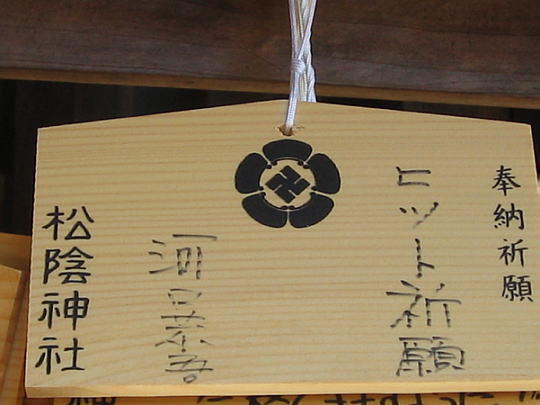 奉納祈願
ヒット祈願
河口恭吾
松陰神社